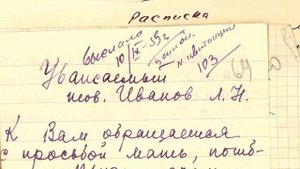 Расписка
выслано
10/IX-59г
заказн.
N квитанции
103
64
Уважаемый
тов. Иванов Л.Н.
К Вам обращается
с просьбой мать, погиб-